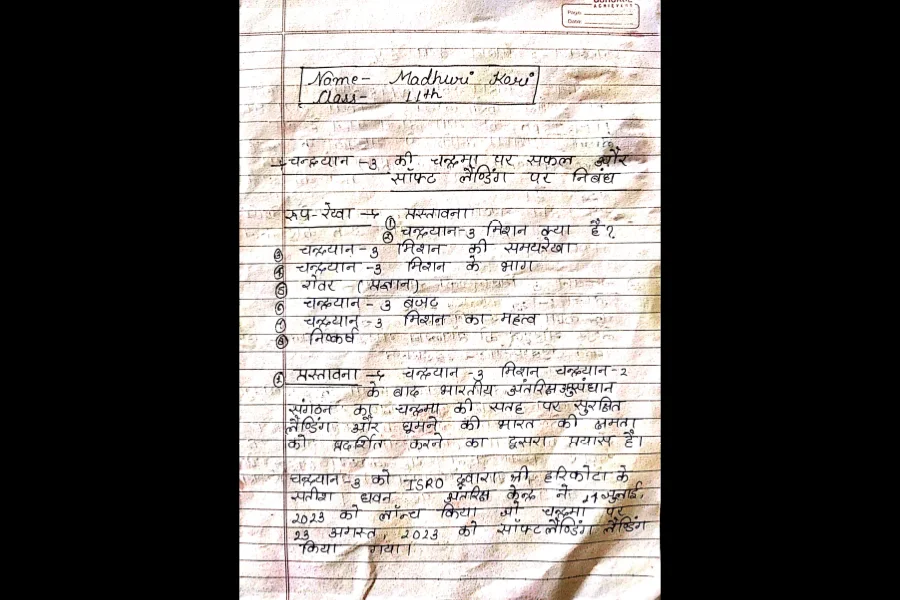 ACHIEVERS
Page:
Date:
Name- Madhuri Kori
Class- 11th
→ चन्द्रयान -3 की चन्द्रमा पर सफल और
सॉफ्ट लैण्डिंग पर निबंध
रूप-रेखा → ① प्रस्तावना
② चन्द्रयान-3 मिशन क्या है?
③ चन्द्रयान-3 मिशन की समयरेखा
④ चन्द्रयान -3 मिशन के भाग
⑤ रोवर - (प्रज्ञान)
⑥ चन्द्रयान - 3 बजट
⑦ चन्द्रयान -3 मिशन का महत्व
⑧ निष्कर्ष
① प्रस्तावना → चन्द्रयान -3 मिशन चन्द्रयान-2
के बाद भारतीय अंतरिक्ष अनुसंधान
संगठन का चन्द्रमा की सतह पर सुरक्षित
लैण्डिंग और घूमने की भारत की क्षमता
को प्रदर्शित करने का दूसरा प्रयास है।
चन्द्रयान-3 को ISRO द्वारा श्री हरिकोटा के
सतीश धवन अंतरिक्ष केन्द्र ने जुलाई,
2023 को लॉन्च किया जो चन्द्रमा पर
23 अगस्त, 2023 को सॉफ्ट लैण्डिंग लैण्डिंग
किया गया।